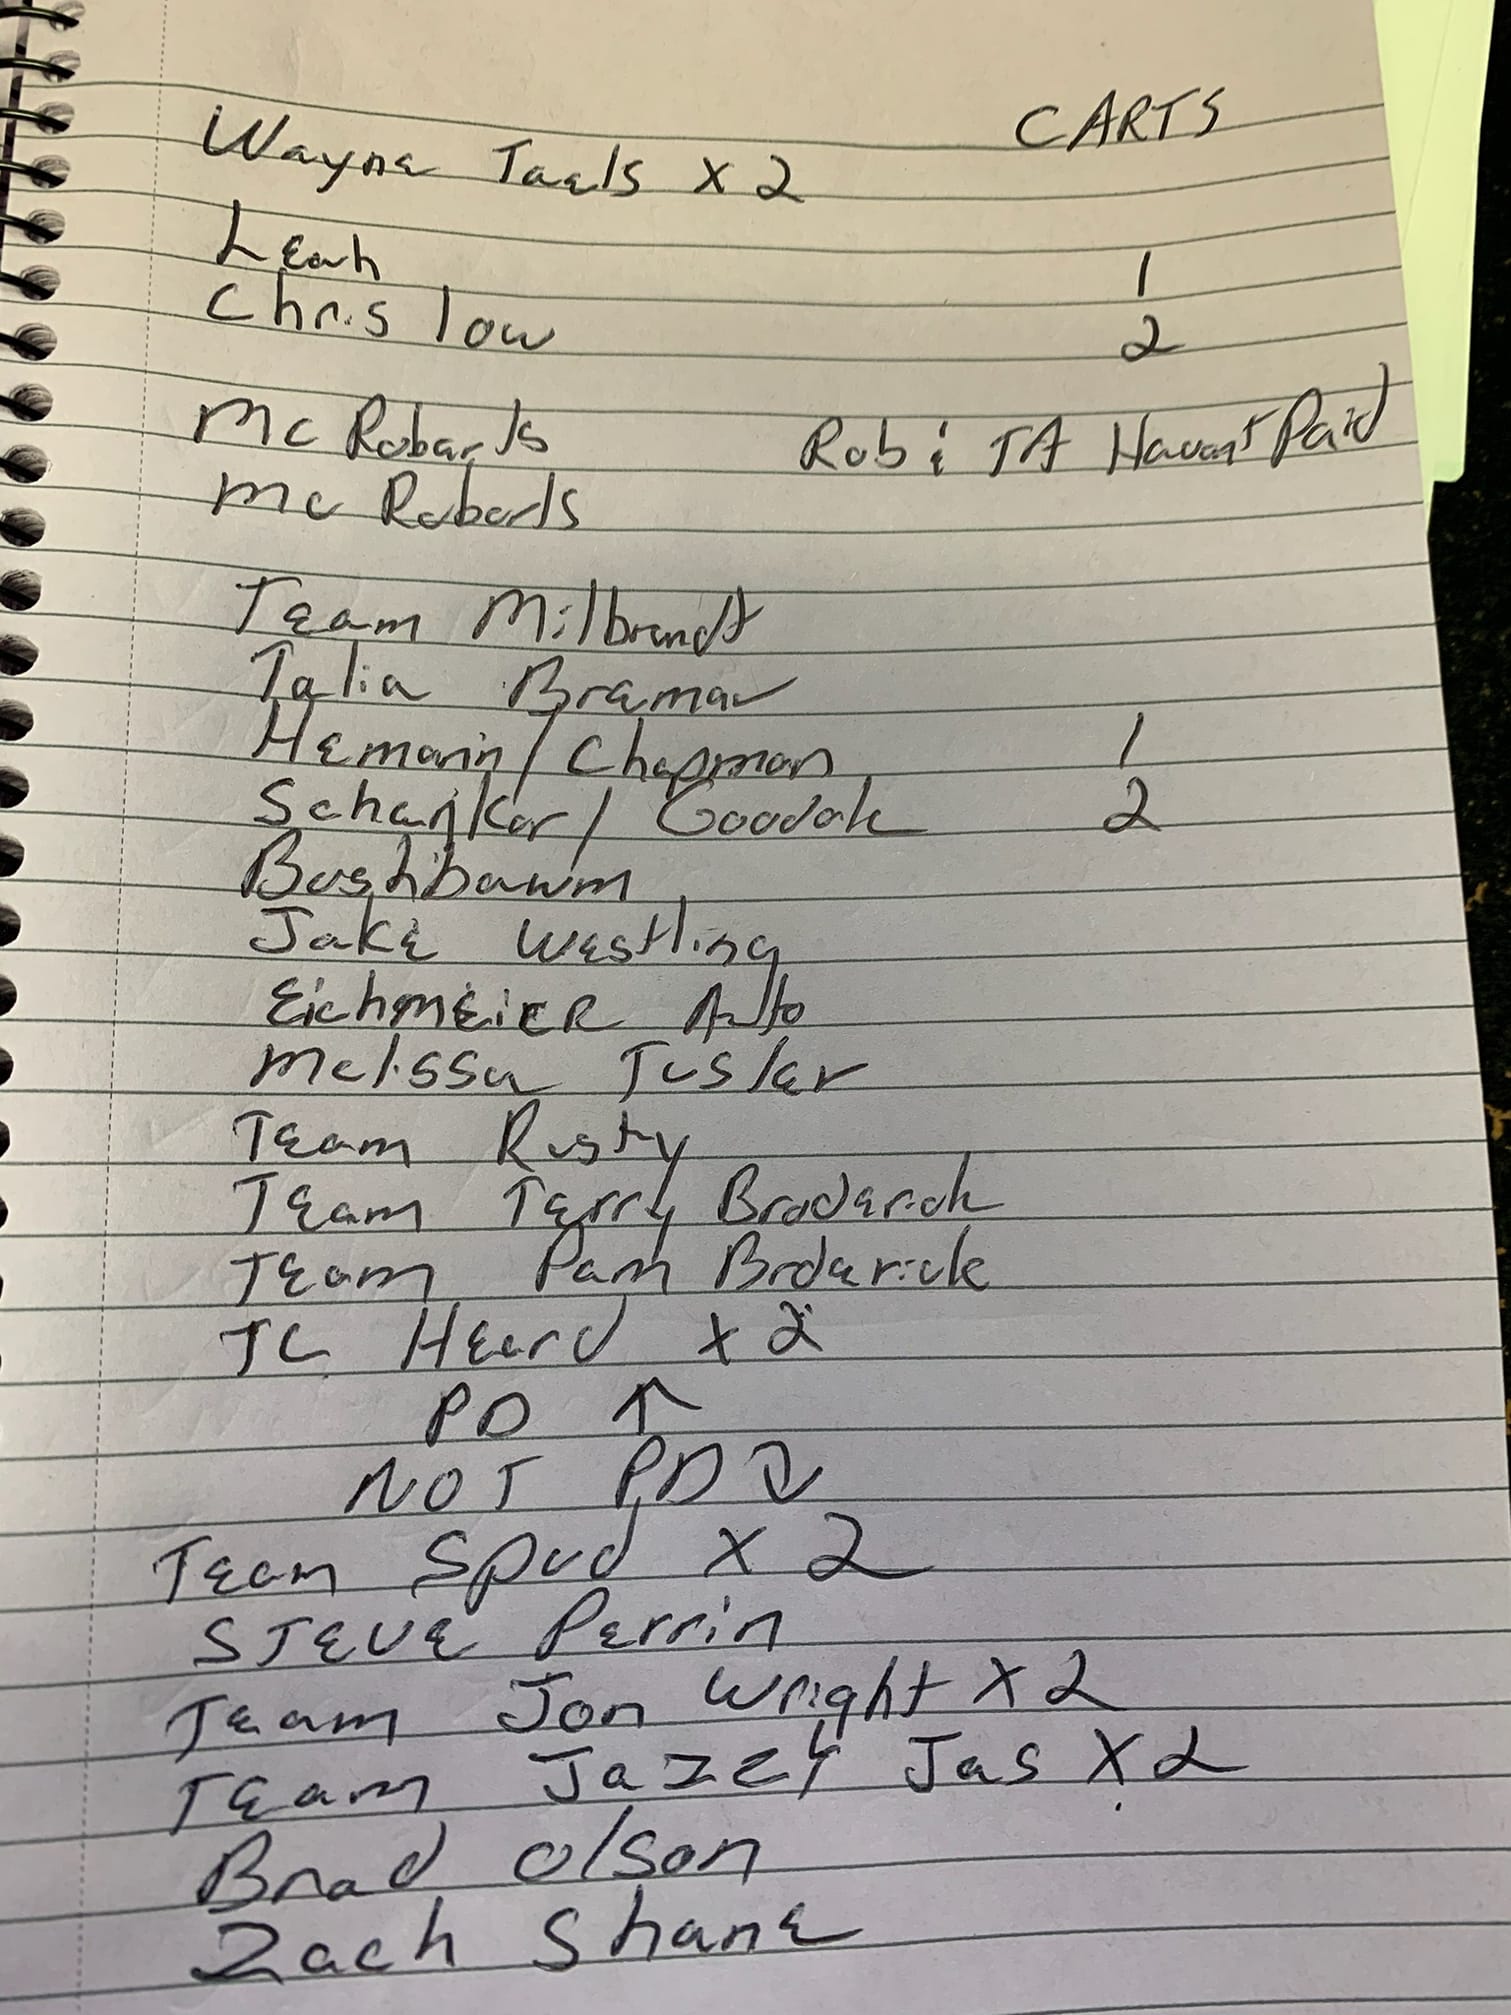 CARTS
Wayne Taels x 2
Leah 1
Chris low 2
Mc Robarts Rob & TA Havent Paid
Mc Robarts
Team Milbrandt
Talia Bramar
Hemann / Chapman 1
Schenker / Goodale 2
Bushbawm
Jake Westling
Eichmeier Auto
Melissa Tusler
Team Rusty
Team Terry Broderick
Team Pam Broderick
TC Heard x 2
PD ↑
NOT PD ↓
Team Spud x 2
STEVE Perrin
Team Jon Wright x 2
Team Jazzy Jas x 2
Brad Olson
Zach Shane